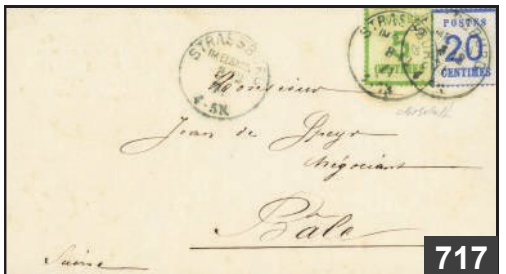 STRASSBURG
IM ELSASS
4-5N
STRASSBURG
5
CENTIMES
POSTES
20
CENTIMES
Monsieur
Jean de Speyr
Négociant
à
Bâle
Suisse
717